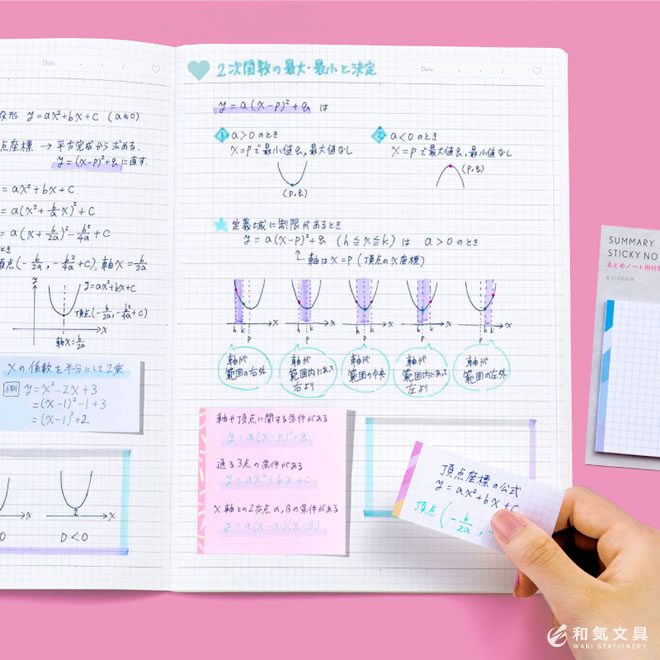 Date
変形 y=ax²+bx+c (a≠0)
点座標 → 平方完成から求める.
y=(x-p)²+q に直す.
=ax²+bx+c
=a(x²+b/a x)²+c
=a(x+b/2a)²-b²/4a+c
とき
頂点(-b/2a, -b²/4a+c), 軸x=-b/2a
y=ax²+bx+c
頂点(-b/2a, -b²/4a+c)
x
xの係数を半分にして2乗
(例) y=x²-2x+3
=(x-1)²-1+3
=(x-1)²+2
x
x
D<0
2次関数の最大・最小と決定
Date
y=a(x-p)²+q は
① a>0のとき
x=pで最小値q,最大値なし
(p,q)
② a<0のとき
x=pで最大値q,最小値なし
(p,q)
定義域に制限があるとき
y=a(x-p)²+q (h≦x≦k) は a>0のとき
軸はx=p (頂点のx座標)
h k p
軸が範囲の右外
軸が範囲内にあって右より
軸が範囲の中央
軸が範囲内にあって左より
軸が範囲の左外
軸や頂点に関する条件がある
y=a(x-p)²+q
通る3点の条件がある
y=ax²+bx+c
x軸との2交点α,βの条件がある
y=a(x-α)(x-β)
頂点座標の公式
y=ax²+bx+c
頂点(-b/2a,
SUMMARY
STICKY NO
まとめノート用付箋
和気文具
WAKI STATIONERY